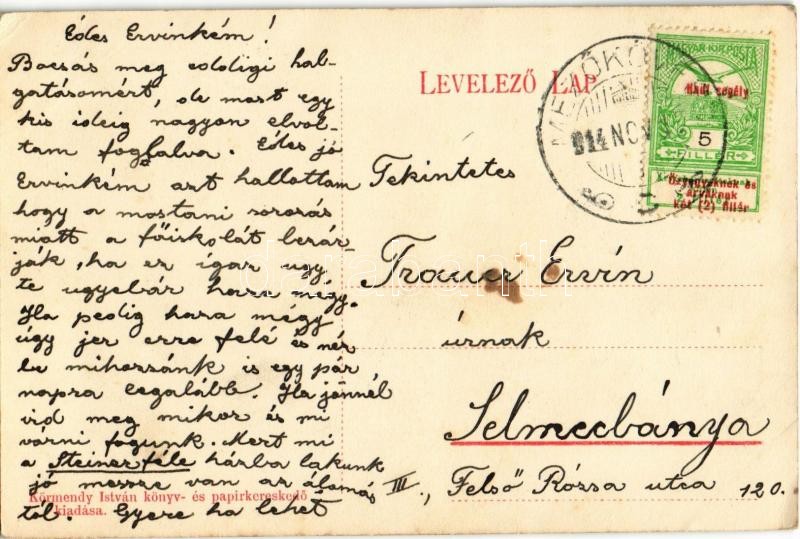 Édes Ervinkém!
Bocsás meg eddigi hal-
gatásomért, de most egy
kis ideig nagyon elvol-
tam foglalva. Édes jó
Ervinkém azt hallottam
hogy a mostani sorozás
miatt a főiskolát bezár-
ják, ha ez igaz ugy
te ugyebár haza mégy.
Ha pedig haza mégy
úgy jer erre felé és nér
be mihozzánk is egy pár
napra legalább. Ha jönnél
ird meg mikor és mi
várni fogunk. Mert mi
a Steiner féle házba lakunk
jó messze van az álomás
tól. Gyere ha lehet
LEVELEZŐ LAP
Tekintetes
Trauer Ervin
úrnak
Selmecbánya
III., Felső Rózsa utca 120.
Körmendy István könyv- és papirkereskedő
kiadása.
MAGYAR KIR. POSTA
Hadi segély
5
FILLÉR
Özvegyeknek és
árváknak
két (2) fillér
MEZŐKÖ
914 NOV
darabanth